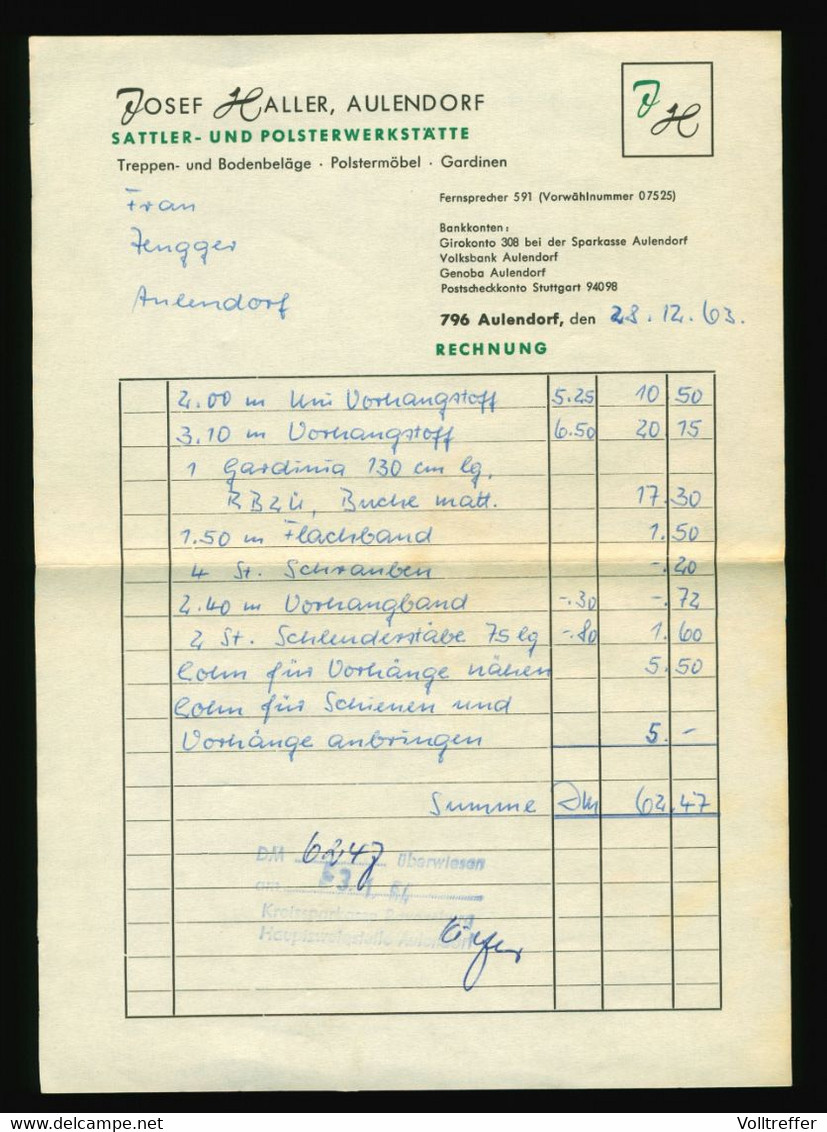 JOSEF HALLER, AULENDORF
SATTLER- UND POLSTERWERKSTÄTTE
Treppen- und Bodenbeläge · Polstermöbel · Gardinen
JH
Frau
Zengger
Aulendorf
Fernsprecher 591 (Vorwählnummer 07525)
Bankkonten:
Girokonto 308 bei der Sparkasse Aulendorf
Volksbank Aulendorf
Genoba Aulendorf
Postscheckkonto Stuttgart 94098
796 Aulendorf, den 28.12.63.
RECHNUNG
2.00 m Uni Vorhangstoff 5.25 10 50
3.10 m Vorhangstoff 6.50 20.15
1 Gardinia 130 cm lg,
Buche matt. 17.30
1.50 m Flachband 1.50
4 St. Schrauben -.20
2.40 m Vorhangband -.30 -.72
2 St. Schleuderstäbe 75 lg -.80 1.60
Lohn für Vorhänge nähen 5.50
Lohn für Schienen und
Vorhänge anbringen 5.-
Summe DM 62.47
DM 62.47 überwiesen
am 3.1.64
Kreissparkasse Ravensburg
Hauptzweigstelle Aulendorf
Volltreffer